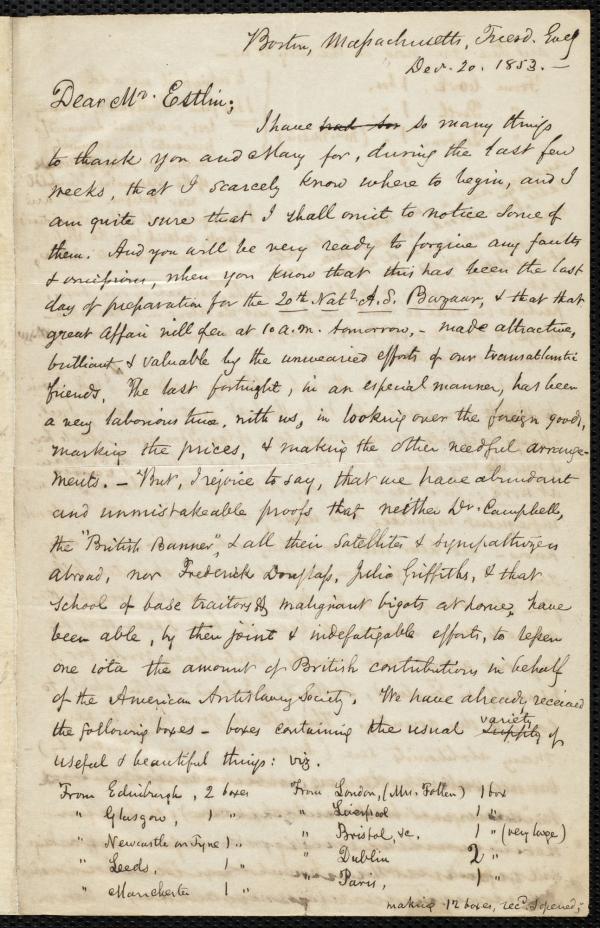 Boston, Massachusetts, Tuesd. Eve'g
Dec. 20. 1853. —
Dear Mr. Estlin;
I have had so so many things
to thank you and Mary for, during the last few
weeks, that I scarcely know where to begin, and I
am quite sure that I shall omit to notice some of
them. And you will be very ready to forgive any faults
& omissions, when you know that this has been the last
day of preparation for the 20th Natl. A. S. Bazaar, & that that
great affair will open at 10 a.m. tomorrow, — made attractive,
brilliant & valuable by the unwearied efforts of our transatlantic
friends. The last fortnight, in an especial manner, has been
a very laborious time, with us, in looking over the foreign goods,
marking the prices, & making the other needful arrange-
ments. — But, I rejoice to say, that we have abundant
and unmistakeable proofs that neither Dr. Campbell,
the "British Banner", & all their satellites & sympathizers
abroad, nor Frederick Douglass, Julia Griffiths, & that
school of base traitors & malignant bigots at home, have
been able, by their joint & indefatigable efforts, to lessen
one iota the amount of British contributions in behalf
of the American Antislavery Society. We have already received
the following boxes — boxes containing the usual variety of
useful & beautiful things: viz.
From Edinburgh, 2 boxes From London, (Mrs. Follen) 1 box
" Glasgow, 1 " " Liverpool 1 "
" Newcastle on Tyne 1 " " Bristol, &c. 1 " (very large)
" Leeds, 1 " " Dublin 2 "
" Manchester 1 " " Paris, 1 "
making 12 boxes, recd. & opened;